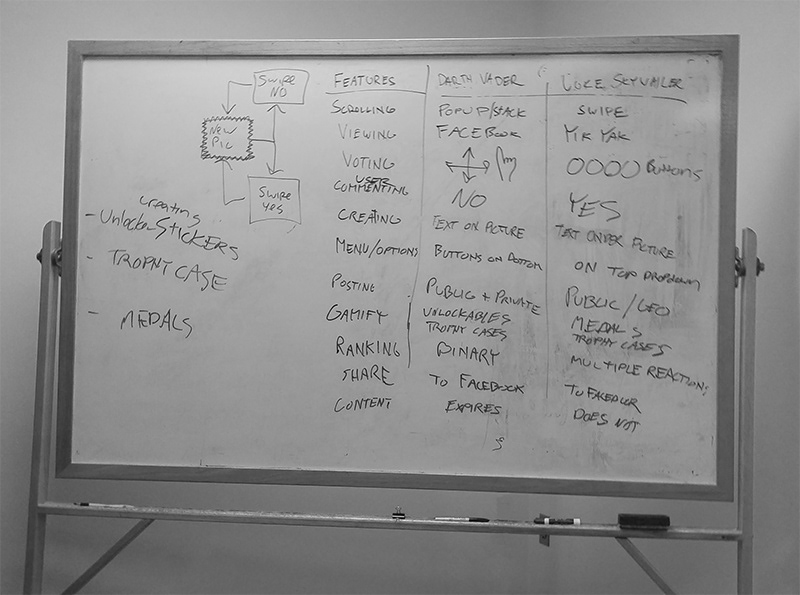 Swipe
NO
New
Pic
Swipe
yes
creating
- Unlock STICKERS
- TROPHY CASE
- MEDALS
FEATURES DARTH VADER LUKE SKYWALKER
SCROLLING POPUP/STACK SWIPE
VIEWING FACEBOOK YIK YAK
VOTING OOOO BUTTONS
USER
COMMENTING NO YES
CREATING TEXT ON PICTURE TEXT UNDER PICTURE
MENU/OPTIONS BUTTONS ON BOTTOM ON TOP DROPDOWN
POSTING PUBLIC + PRIVATE PUBLIC/GEO
GAMIFY UNLOCKABLES MEDALS
TROPHY CASES TROPHY CASES
RANKING BINARY MULTIPLE REACTIONS
SHARE TO FACEBOOK TO FACEBOOK
CONTENT EXPIRES DOES NOT